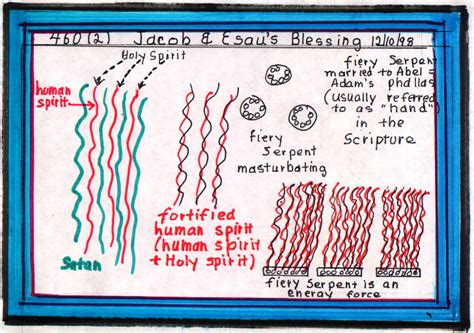 460(2) Jacob & Esau's Blessing 12/10/98
Holy Spirit
human
spirit
Satan
fortified
human spirit
(human spirit
+ Holy spirit)
fiery
Serpent
masturbating
fiery Serpent
married to Abel =
Adam's phallas
(usually referred
to as "hand")
in the
Scripture
fiery Serpent is an
energy force